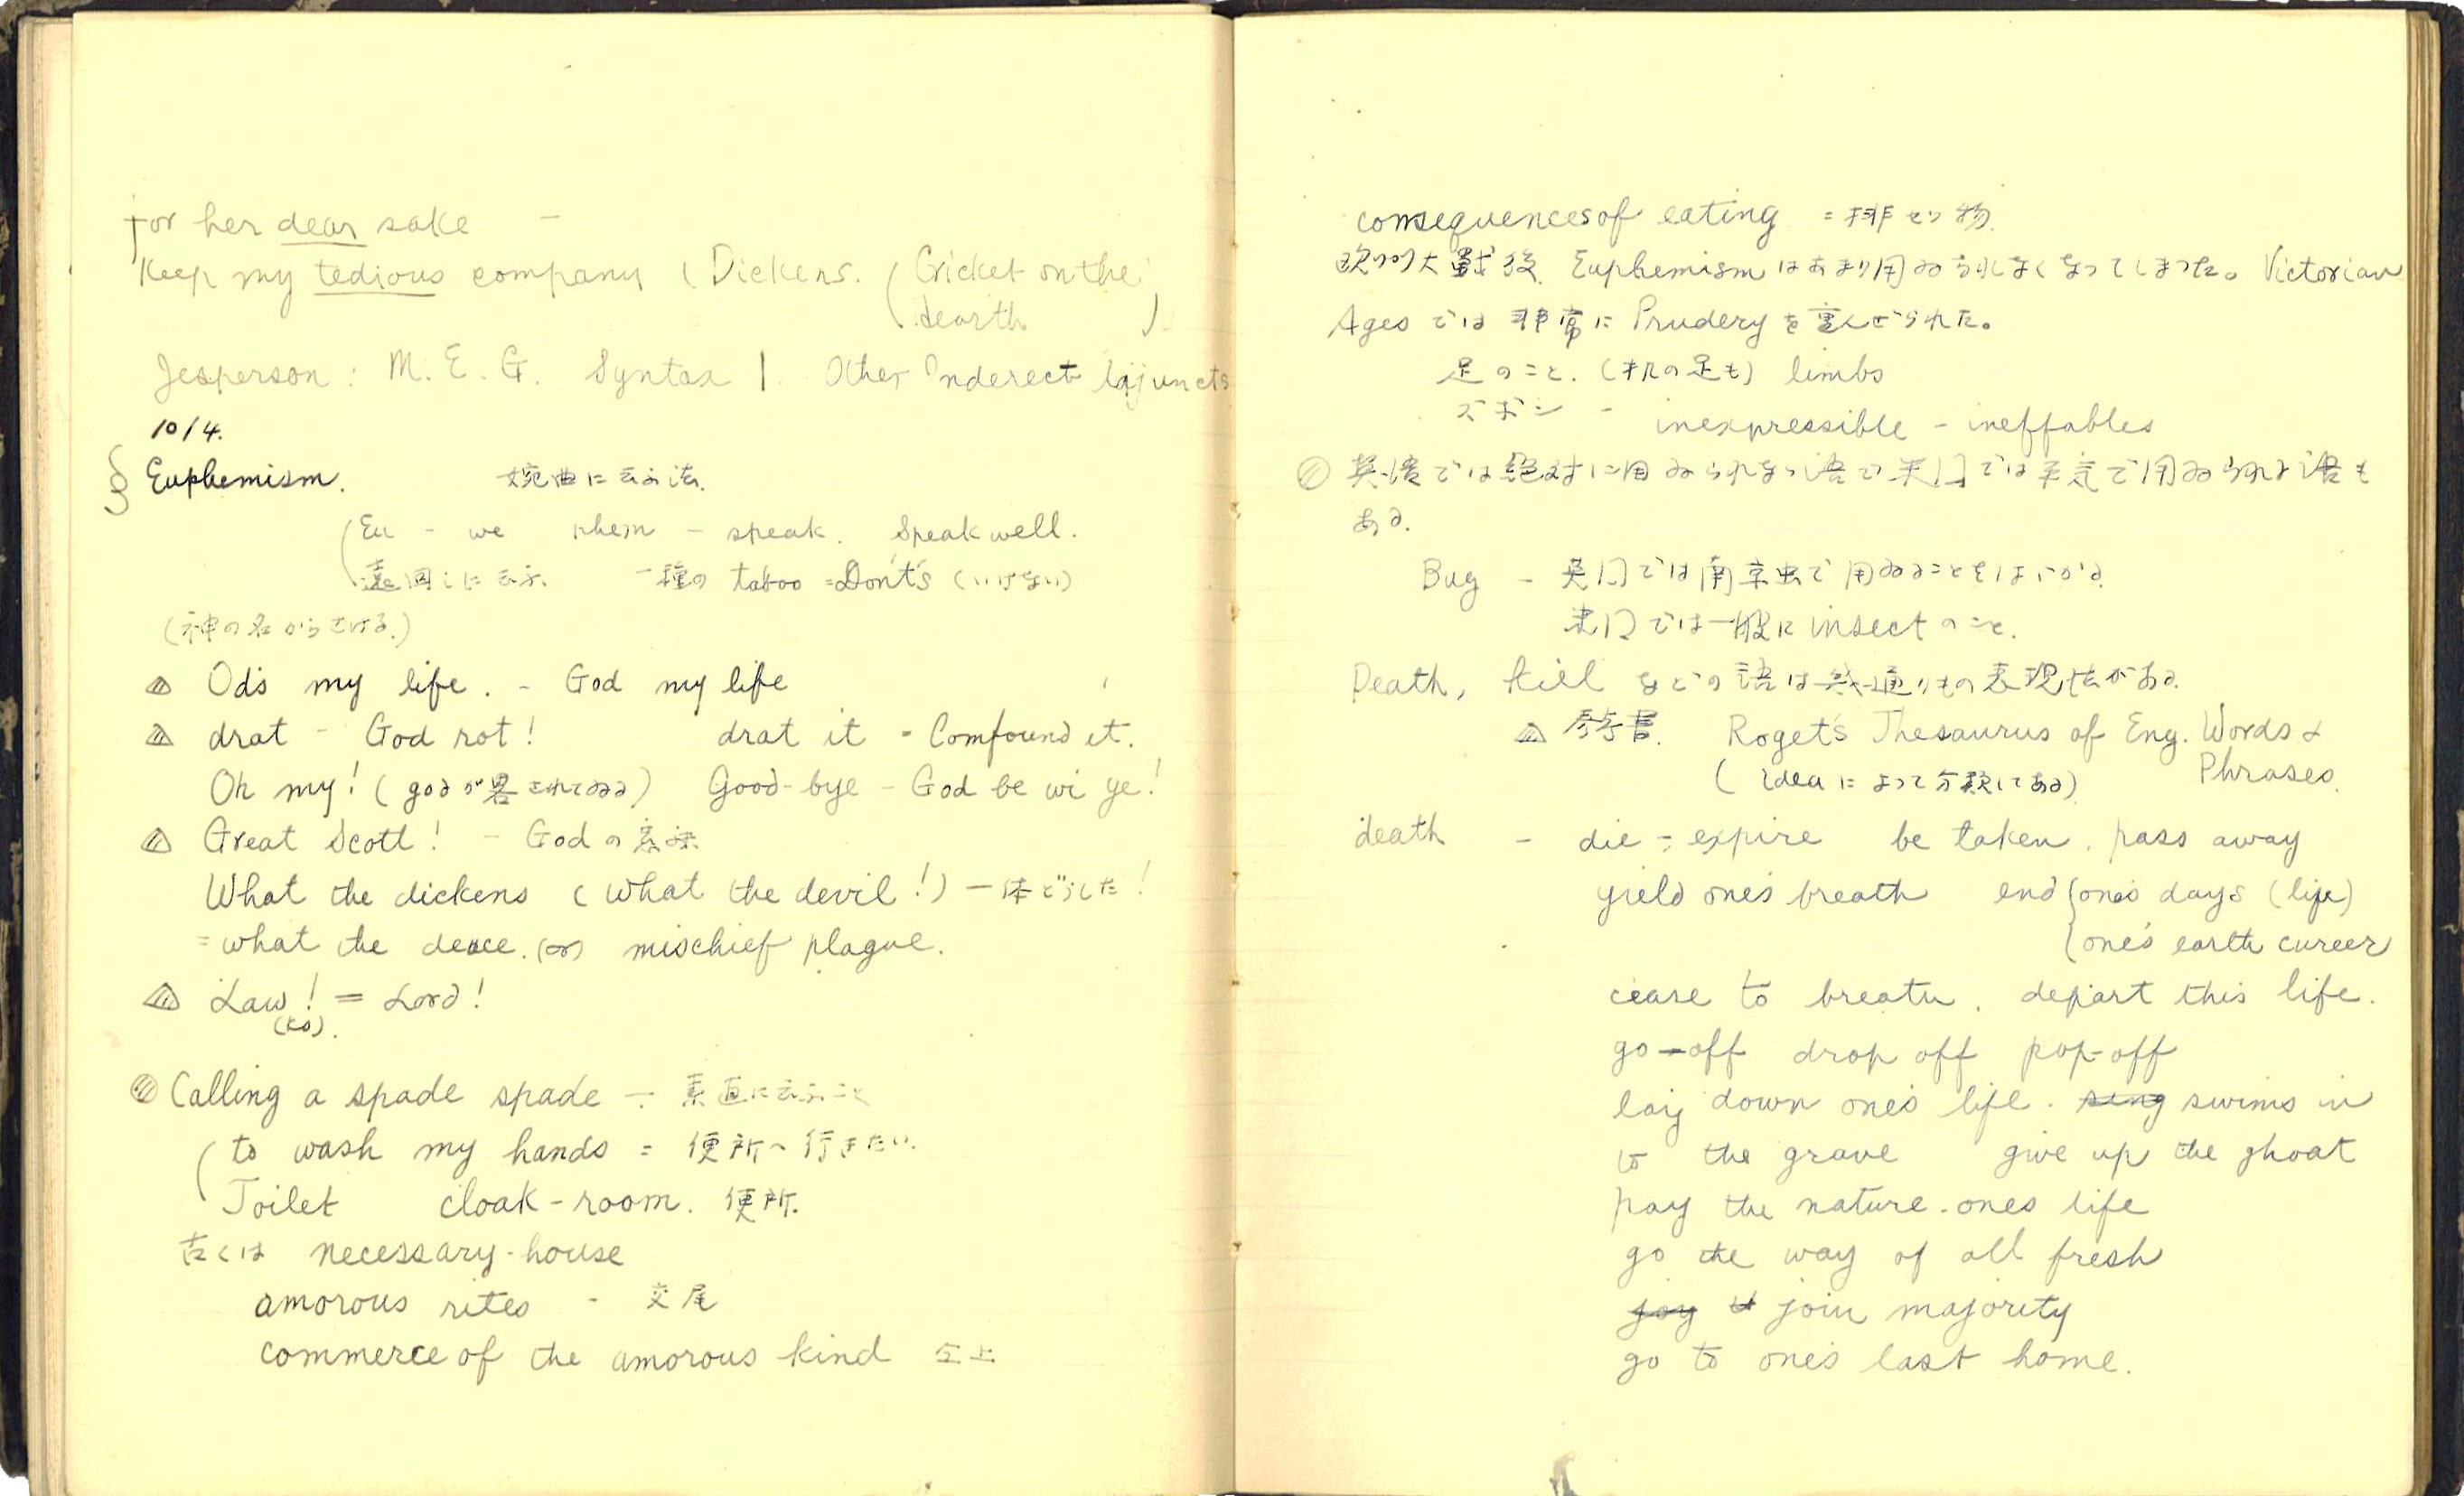 for her dear sake -
Keep my tedious company ( Dickens. ( Cricket on the
Hearth )
Jesperson : M. E. G. Syntax 1. Other Inderect Ajuncts
10/4.
§ Euphemism. 婉曲に云ふ法.
(Eu - we phem - speak. Speak well.
遠回しに云ふ 一種の taboo = Don't's (いけない)
(神の名からさける.)
△ Od's my life. - God my life
△ drat - God rot! drat it - Comfound it.
Oh my! (god が畧されてゐる) Good-bye - God be wi ye!
△ Great Scott! - God の意味
What the dickens ( What the devil!) 一体どうした!
= what the deuce. (or) mischief plague.
△ Law! = Lord!
Calling a spade spade - 素直に云ふこと
( to wash my hands = 便所へ行きたい.
Toilet cloak-room. 便所.
古くは necessary-house
amorous rites - 交尾
commerce of the amorous kind 仝上
consequences of eating = 排セツ物.
欧州大戦後 Euphemism はあまり用ゐられなくなってしまった。 Victorian
Ages では 非常に Prudery を重んぜられた。
足のこと. (机の足も) limbs
ズボン - inexpressible - ineffables
英語では絶対に用ゐられない語で米国では平気で用ゐられる語も
ある.
Bug - 英国では南京虫で用ゐることをはゞかる.
米国では一般に insect のこと.
Death, kill などの語は幾通りもの表現法がある.
△ 参考書. Roget's Thesaurus of Eng. Words &
Phrases.
( idea によって分類してある)
death - die = expire be taken. pass away
yield one's breath end { one's days (life)
{ one's earth cureer
cease to breath. depart this life.
go-off drop off pop-off
lay down one's life. swims in
to the grave give up the ghoat
pay the nature. ones life
go the way of all fresh
join majority
go to one's last home.